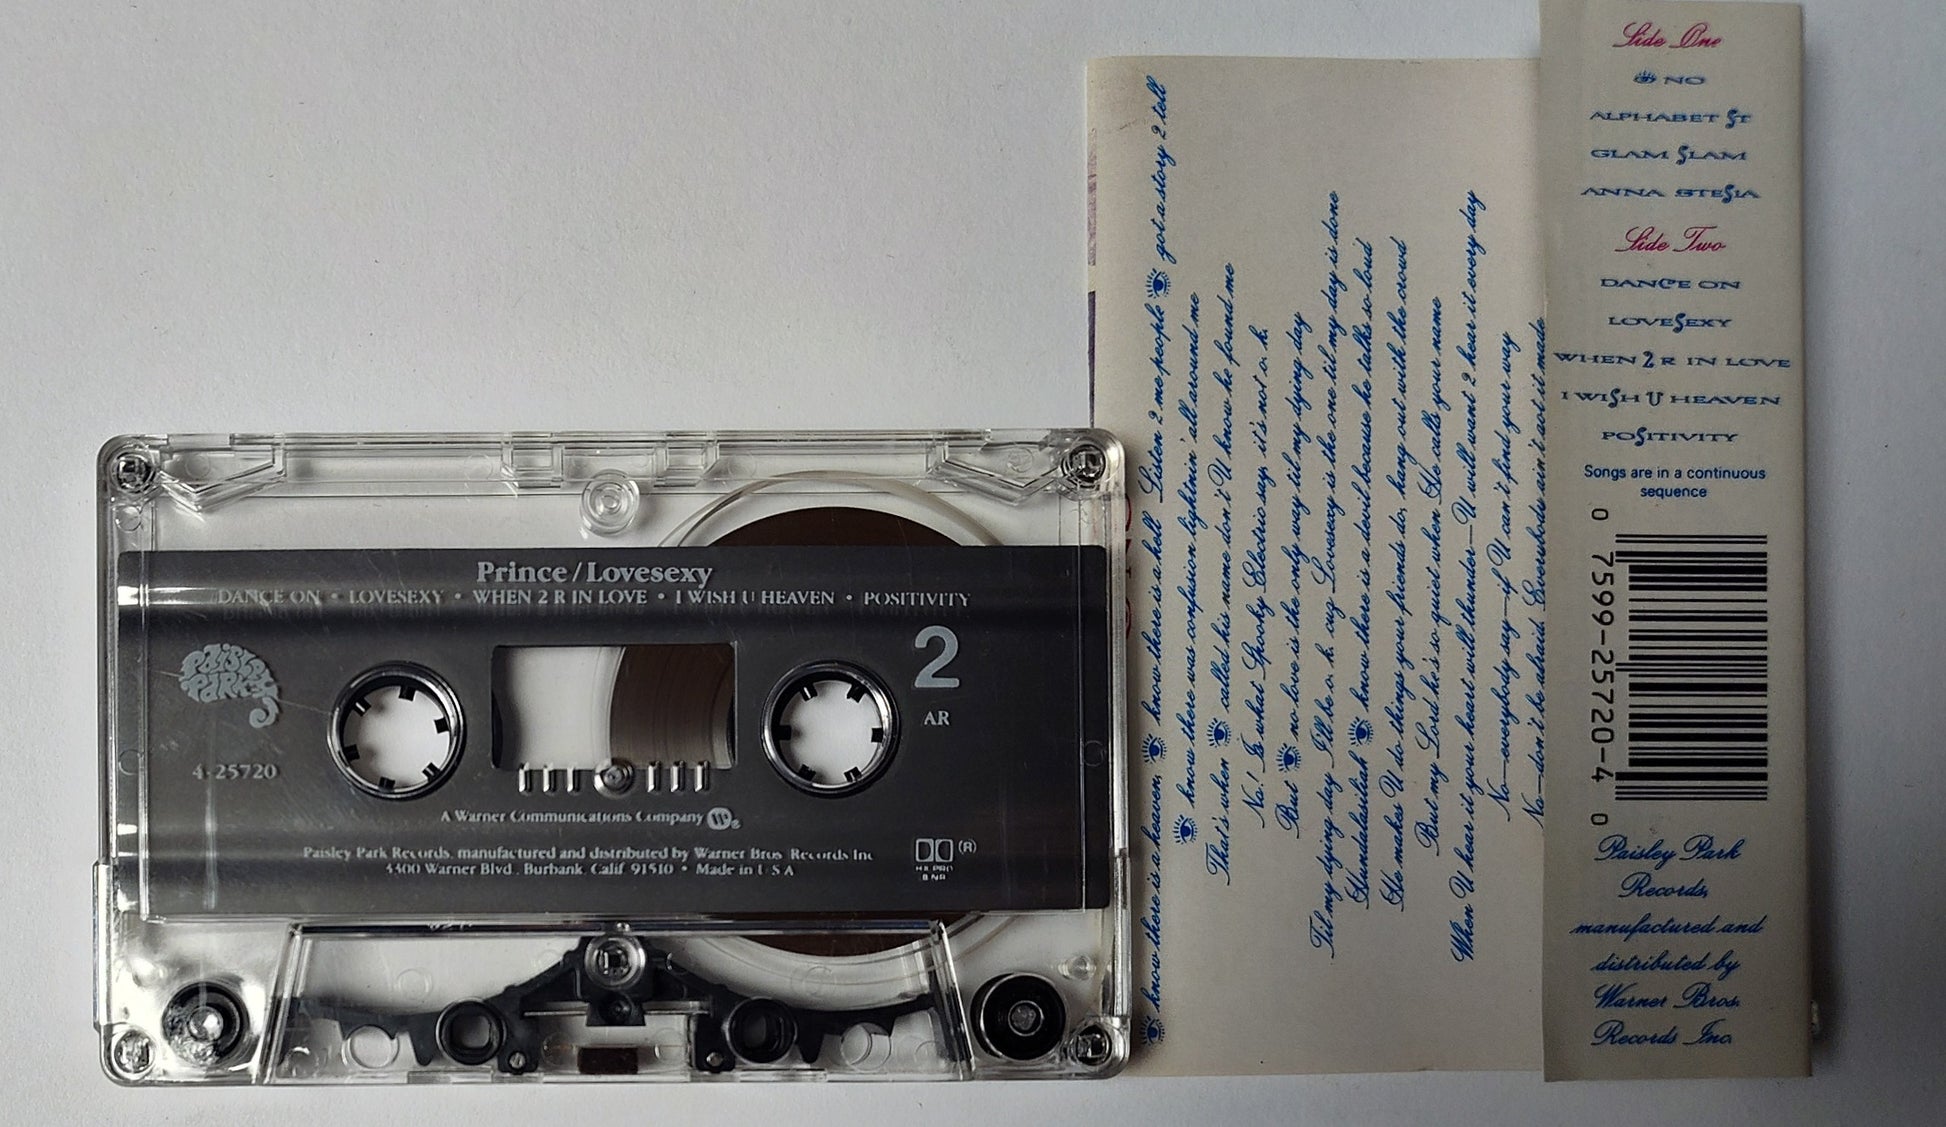 Prince/Lovesexy
DANCE ON • LOVESEXY • WHEN 2 R IN LOVE • I WISH U HEAVEN • POSITIVITY
PAISLEY PARK
2
AR
4-25720
A Warner Communications Company
Paisley Park Records, manufactured and distributed by Warner Bros. Records Inc.
3300 Warner Blvd., Burbank, Calif. 91510 • Made in U.S.A.
HX PRO
B NR
(R)
👁 know there is a heaven, 👁 know there is a hell Listen 2 me people 👁 got a story 2 tell
👁 know there was confusion lightnin' all around me
That's when 👁 called his name don't U know he found me
No! Is what Spooky Electric say, it's not o. k.
But 👁 no love is the only way til my dying day
Til my dying day I'll be o. k. cuz Lovesexy is the one til my day is done
Hundalasiliah 👁 know there is a devil because he talks so loud
He makes U do things your friends do, hang out with the crowd
But my Lord he's so quiet when He calls your name
When U hear it your heart will thunder—U will want 2 hear it every day
No—everybody say—if U can't find your way
No—don't be afraid Everybody ain't got it made
Side One
👁 NO
ALPHABET ST
GLAM SLAM
ANNA STESIA
Side Two
DANCE ON
LOVESEXY
WHEN 2 R IN LOVE
I WISH U HEAVEN
POSITIVITY
Songs are in a continuous
sequence
0 7599-25720-4 0
Paisley Park
Records,
manufactured and
distributed by
Warner Bros.
Records Inc.